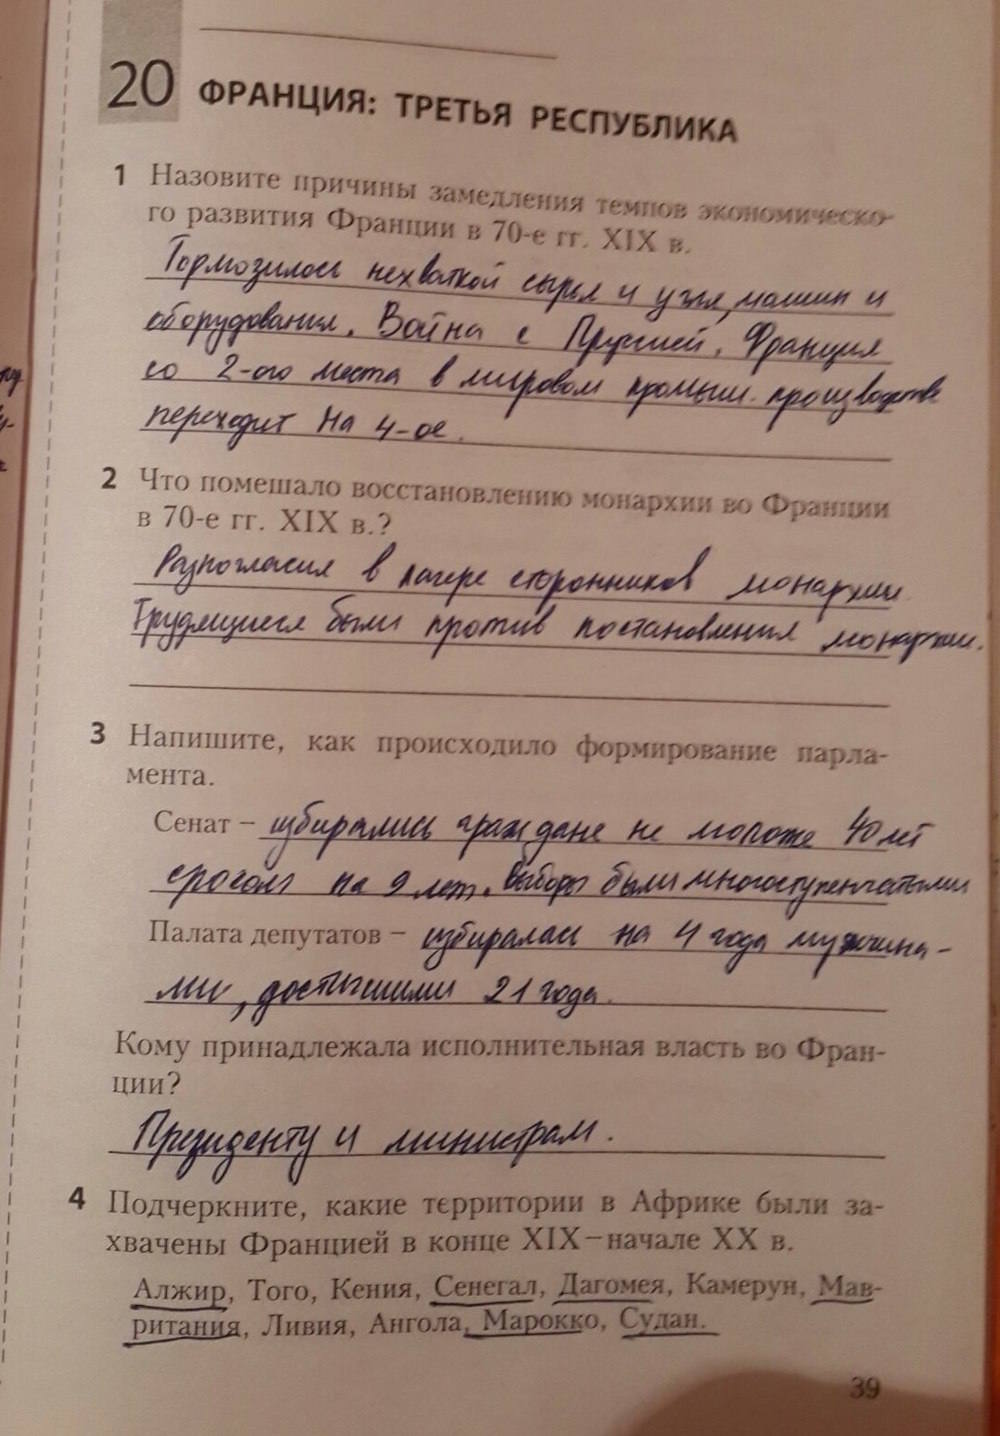 20 ФРАНЦИЯ: ТРЕТЬЯ РЕСПУБЛИКА
1 Назовите причины замедления темпов экономическо-
го развития Франции в 70-е гг. XIX в.
Тормозилось нехваткой сырья и угля, машин и
оборудования. Война с Пруссией. Франция
со 2-ого места в мировом промыш. производстве
переходит на 4-ое.
2 Что помешало восстановлению монархии во Франции
в 70-е гг. XIX в.?
Разногласия в лагере сторонников монархии.
Трудящиеся были против постановления монархии.
3 Напишите, как происходило формирование парла-
мента.
Сенат – избирались граждане не моложе 40 лет
сроком на 9 лет. Выборы были многоступенчатыми
Палата депутатов – избиралась на 4 года мужчина-
ми, достигшими 21 года.
Кому принадлежала исполнительная власть во Фран-
ции?
Президенту и министрам.
4 Подчеркните, какие территории в Африке были за-
хвачены Францией в конце XIX – начале XX в.
Алжир, Того, Кения, Сенегал, Дагомея, Камерун, Мав-
ритания, Ливия, Ангола, Марокко, Судан.
39